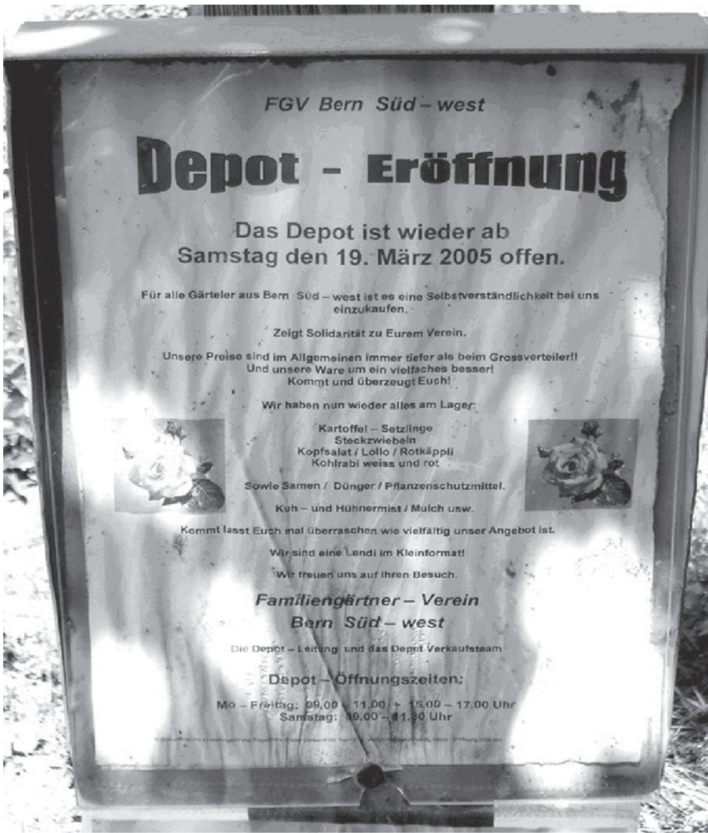 FGV Bern Süd – west
Depot - Eröffnung
Das Depot ist wieder ab
Samstag den 19. März 2005 offen.
Für alle Gärteler aus Bern Süd – west ist es eine Selbstverständlichkeit bei uns
einzukaufen.
Zeigt Solidarität zu Eurem Verein.
Unsere Preise sind im Allgemeinen immer tiefer als beim Grossverteiler!!
Und unsere Ware um ein vielfaches besser!
Kommt und überzeugt Euch!
Wir haben nun wieder alles am Lager:
Kartoffel – Setzlinge
Steckzwiebeln
Kopfsalat / Lollo / Rotkäppli
Kohlrabi weiss und rot
Sowie Samen / Dünger / Pflanzenschutzmittel.
Kuh – und Hühnermist / Mulch usw.
Kommt lasst Euch mal überraschen wie vielfältig unser Angebot ist.
Wir sind eine Landi im Kleinformat!
Wir freuen uns auf Ihren Besuch.
Familiengärtner – Verein
Bern Süd – west
Die Depot – Leitung und das Depot Verkaufsteam
Depot – Öffnungszeiten:
Mo – Freitag: 09.00 - 11.00 + 15.00 – 17.00 Uhr
Samstag: 09.00 – 11.30 Uhr